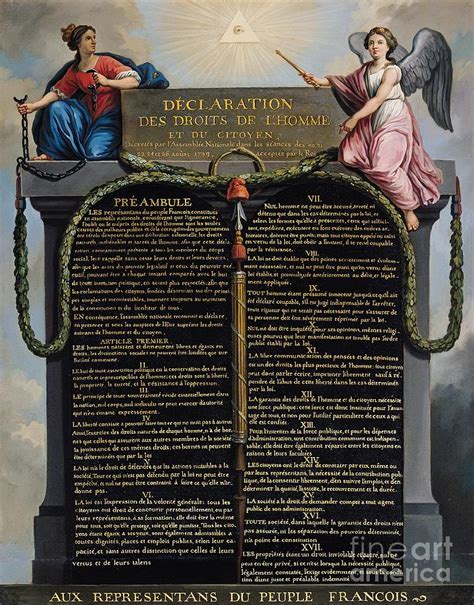 DÉCLARATION
DES DROITS DE L'HOMME
ET DU CITOYEN,
Décretés par l'Assemblée Nationale dans les séances des 20, 21,
23, 24 et 26 août 1789, acceptés par le Roi
PRÉAMBULE
LES représentans du peuple Francois, constitués
en assemblée nationale, considérant que l'ignorance,
l'oubli ou le mépris des droits de l'homme sont les seules
causes des malheurs publics et de la corruption des gouvernemens
ont résolu d'exposer dans une déclaration solemnelle, les droits
naturels, inaliénables et sacrés de l'homme; afin que cette décla
ration, constamment présente à tous les membres du corps
social, leur rappelle sans cesse leurs droits et leurs devoirs;
afin que les actes du pouvoir législatif et ceux du pouvoir exé
cutif, pouvant être à chaque instant comparés avec le but
de toute institution politique, en soient plus respectés; afin que
les reclamations des citoyens, fondées désormais sur des prin
cipes simples et incontestables, tournent toujours au maintien
de la constitution et du bonheur de tous.
EN conséquence, l'assemblée nationale reconnoit et déclare
en présence et sous les auspices de l'Etre suprême les droits
suivans de l'homme et du citoyen.
ARTICLE PREMIER
LES hommes naissent et demeurent libres et égaux en
droits, les distinctions sociales ne peuvent être fondées que sur
l'utilité commune.
II.
LE but de toute association politique est la conservation des droits
naturels et imprescriptibles de l'homme; ces droits sont la liberté,
la propriété, la sureté, et la résistance à l'oppression.
III.
LE principe de toute souveraineté réside essentiellement dans
la nation, nul corps, nul individu ne peut exercer d'autorité
qui n'en émane expressément.
IV.
LA liberté consiste à pouvoir faire tout ce qui ne nuit pas à autrui
Ainsi, l'exercice des droits naturels de chaque homme, n'a de bor
nes que celles qui assurent aux autres membres de la société
la jouissance de ces mêmes droits; ces bornes ne peuvent
être déterminées que par la loi
V.
LA loi n'a le droit de défendre que les actions nuisibles à la
société. Tout ce qui n'est pas défendu par la loi ne peut être
empêché, et nul ne peut être contraint à faire ce qu'elle n'or
donne pas.
VI.
LA loi est l'expression de la volonté générale; tous les
citoyens ont droit de concourir personnellement, ou par
leurs représentans, à sa formation; elle doit être la même
pour tous, soit qu'elle protege, soit qu'elle punisse. Tous les
citoyens étant égaux à ses yeux, sont également admissibles à
toutes dignités, places et emplois publics, selon leur capa
cité, et sans autres distinction que celles de leurs
vertus et de leurs talens
VII.
NUL homme ne peut être accusé, arrêté, ni
détenu que dans les cas déterminés par la loi, et
selon les formes qu'elle a prescrites, ceux qui sollicitent,
expédient, exécutent ou font exécuter des ordres ar
bitraires, doivent être punis; mais tout citoyen appelé
ou saisi en vertu de la loi, doit obéir à l'instant, il se rend
coupable par la résistance.
VIII.
LA loi ne doit établir que des peines strictement et évidem
ment nécessaires, et nul ne peut être puni qu'en vertu d'une
loi établie et promulguée antérieurement au délit, et légale
ment appliquée.
IX.
TOUT homme étant présumé innocent jusqu'à ce qu'il ait
été déclaré coupable, s'il est jugé indispensable de l'arrêter,
toute rigueur qui ne serait pas nécessaire pour s'assurer
de sa personne doit être sévèrement réprimée par la loi.
X.
NUL ne doit être inquiété pour ses opinions, mêmes religi
euses pourvu que leur manifestation ne trouble pas l'ordre
public établi par la loi.
XI.
LA libre communication des pensées et des opinions est
un des droits les plus précieux de l'homme; tout citoyen
peut donc parler, écrire, imprimer librement, sauf à ré
pondre de l'abus de cette liberté dans les cas déterminés
par la loi.
XII.
LA garantie des droits de l'homme et du citoyen nécessite
une force publique; cette force est donc instituée pour l'avan
tage de tous, et non pour l'utilité particuliere de ceux à qui
elle est confiée.
XIII.
POUR l'entretien de la force publique, et pour les dépenses
d'administration, une contribution commune est indispen
sable; elle doit être également répartie entre les citoyens en
raison de leurs facultés
XIV.
LES citoyens ont le droit de constater par eux-mêmes ou
par leurs représentans, la nécessité de la contribution pu
blique, de la consentir librement, d'en suivre l'emploi, et d'en
déterminer la quotité, l'assiette, le recouvrement et la durée.
XV.
LA société a le droit de demander compte à tout agent
public de son administration.
XVI.
TOUTE société, dans laquelle la garantie des droits
n'est pas assurée, ni la séparation des pouvoirs déter
minée, n'a point de constitution
XVII.
LES propriétés étant un droit inviolable et sacré, nul
ne peut en être privé, si ce n'est lorsque la nécessité
publique, légalement constatée, l'exige évidemment, et
sous la condition d'une juste et préalable indemnité
AUX REPRESENTANS DU PEUPLE FRANCOIS
fine art
america